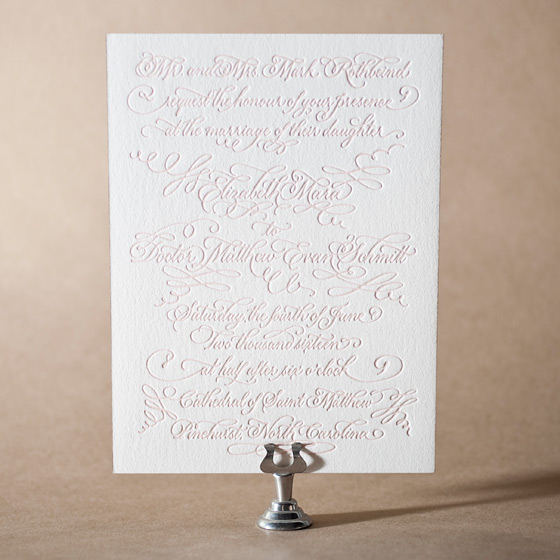 Mr. and Mrs. Mark Rothbeind
request the honour of your presence
at the marriage of their daughter
Elizabeth Mara
to
Doctor Matthew Evan Schmitt
Saturday, the fourth of June
Two thousand sixteen
at half after six o'clock
Cathedral of Saint Matthew
Pinehurst, North Carolina